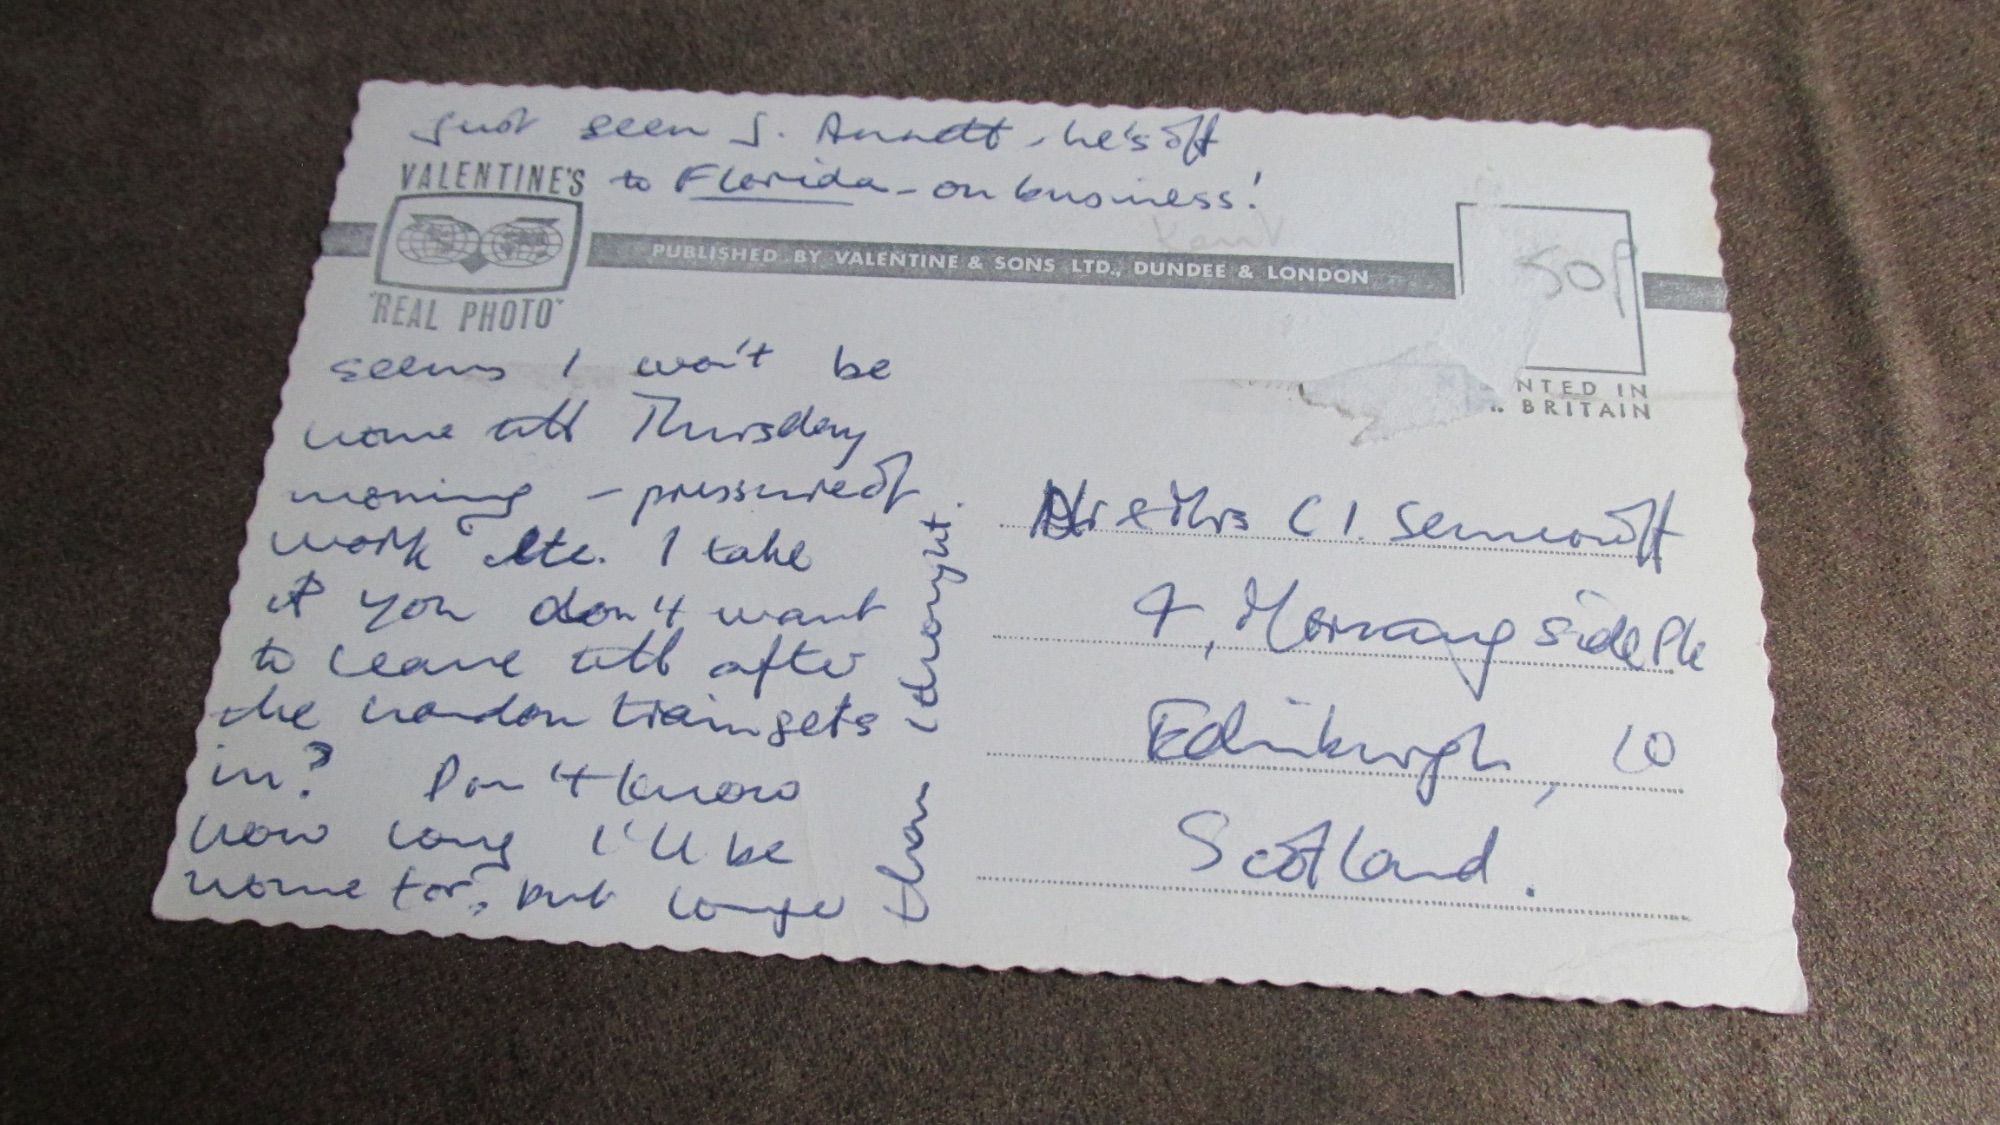 Just seen J. Annett - he's off
to Florida - on business!
VALENTINE'S
"REAL PHOTO"
PUBLISHED BY VALENTINE & SONS LTD., DUNDEE & LONDON
Kent
50p
NTED IN
BRITAIN
seems I won't be
home till Thursday
morning - pressure of
work etc. I take
it you don't want
to leave till after
the London train gets
in? Don't know
how long I'll be
home for, but longer
than I thought.
Mr & Mrs C I.
4, Morningside Ple
Edinburgh, 10
Scotland.